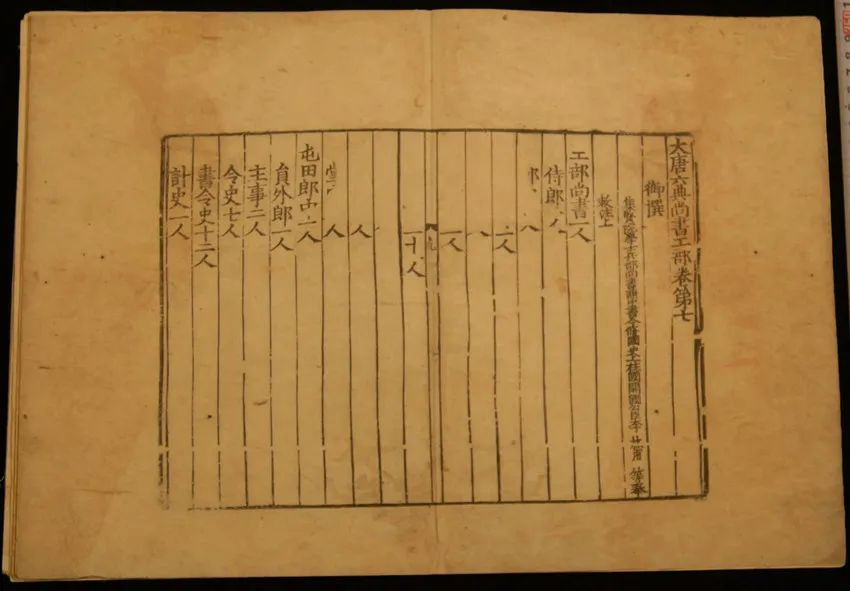 大唐六典尚書工部卷第七
御撰
集賢院學士兵部尚書兼中書令脩國史上柱國開國公臣李林甫等奉
敕注上
工部尚書一人
侍郎一人
郎
一人
人
一人
一十人
人
人
屯田郎中一人
員外郎一人
主事二人
令史七人
書令史十二人
計史一人